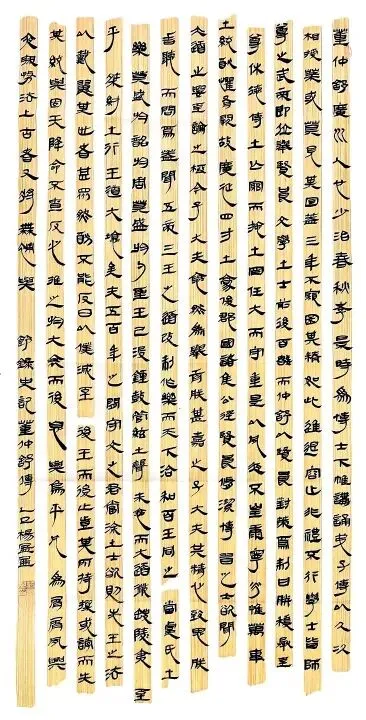 董仲舒廣川人也少治春秋孝景時為博士下帷講誦弟子傳以久次
相授業或莫見其面蓋三年不窺園其精如此進退容止非禮不行學士皆師
尊之武帝即位舉賢良文學之士前後百數而仲舒以賢良對策焉制曰朕獲承至
尊休德傳之亡窮而施之罔極任大而守重是以夙夜不皇康寧永惟萬事
之統猶懼有闕故廣延四方之豪俊郡國諸侯公選賢良修潔博習之士欲聞
大道之要至論之極今子大夫褎然為舉首朕甚嘉之子大夫其精心致思朕
垂聽而問焉蓋聞五帝三王之道改制作樂而天下洽和百王同之當虞氏之
樂莫盛於韶於周莫盛於勺聖王已沒鐘鼓管弦之聲未衰而大道微缺陵夷至
乎桀紂之行王道大壞矣夫五百年之間守文之君當塗之士欲則先王之法
以戴翼其世者甚眾然猶不能反日以仆滅至後王而後止豈其所持操或誖而失
其統與固天降命不可復反必推之於大衰而後息與烏乎凡所為屑屑夙興
夜寐務法上古者又將無補與 節錄史記董仲舒傳 楊